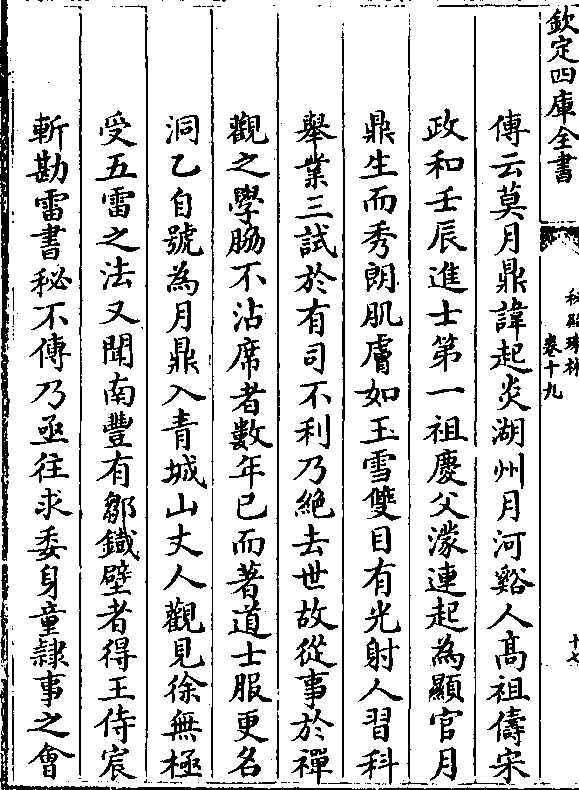 欽定四庫全書
秘殿珠林
卷十九
十七
傳云莫月鼎諱起炎湖州月河谿人高祖儔宋
政和壬辰進士第一祖慶父濛連起為顯官月
鼎生而秀朗肌膚如玉雪雙目有光射人習科
舉業三試於有司不利乃絶去世故從事於禪
觀之學脇不沾席者數年已而著道士服更名
洞乙自號為月鼎入青城山丈人觀見徐無極
受五雷之法又聞南豐有鄒鐵壁者得王侍宸
斬勘雷書秘不傳乃亟往求委身童隸事之會